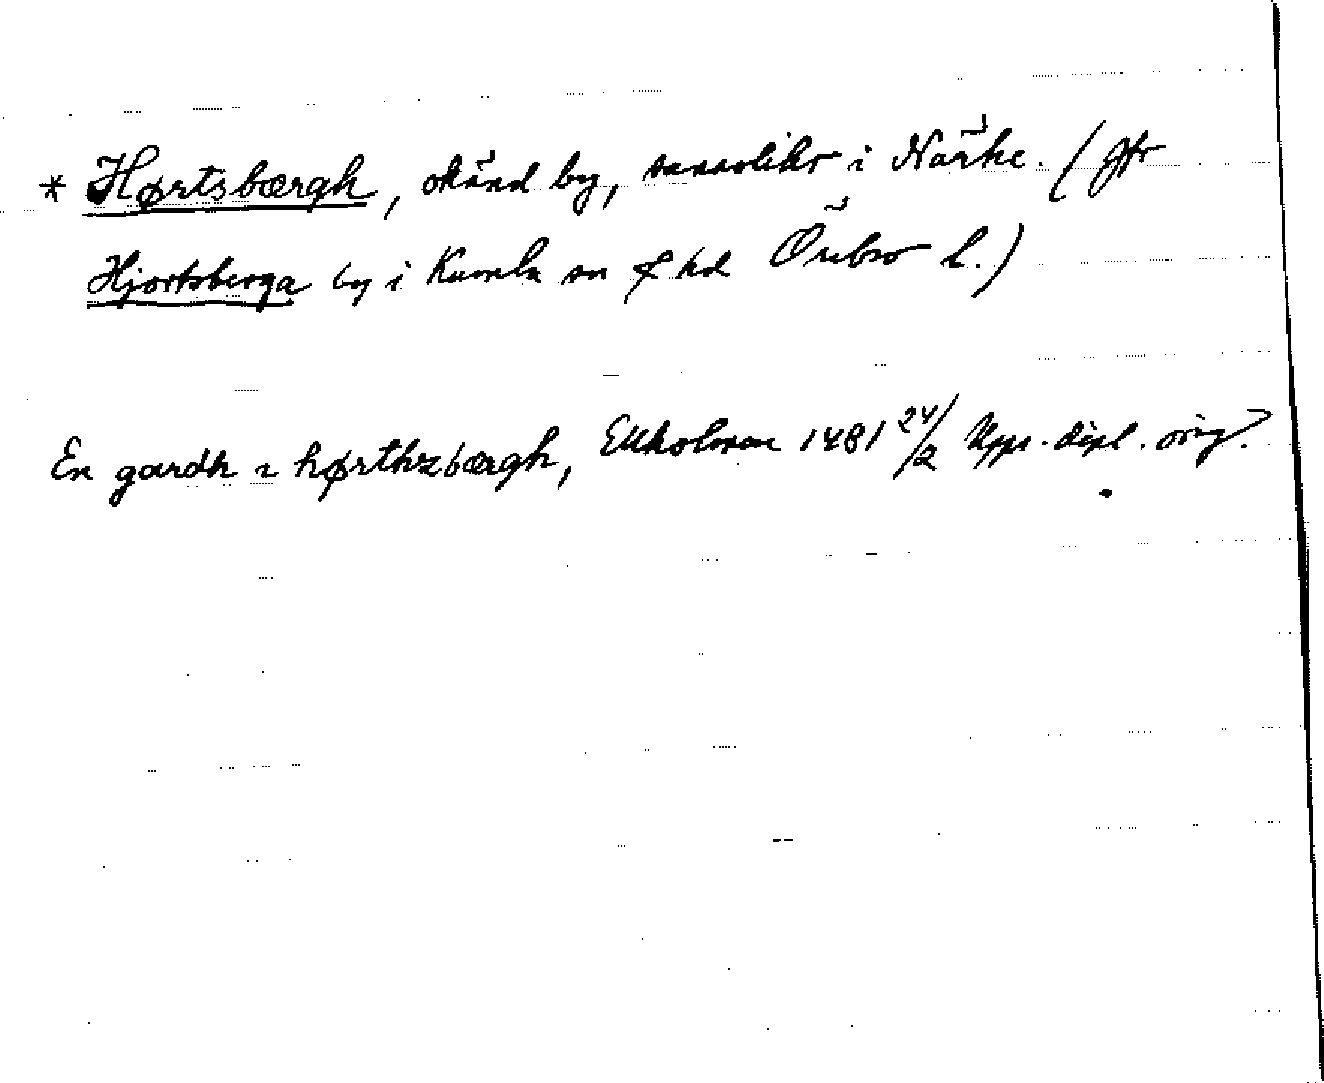 * Hørtsbærgh, okänd by, sannolikt i Närke. (Jfr
Hjortsberga by i Kumla sn o hd Örebro l.)
En gardh i hørthzbærgh, Ekholmen 1481 24/2 Upps. dipl. orig.